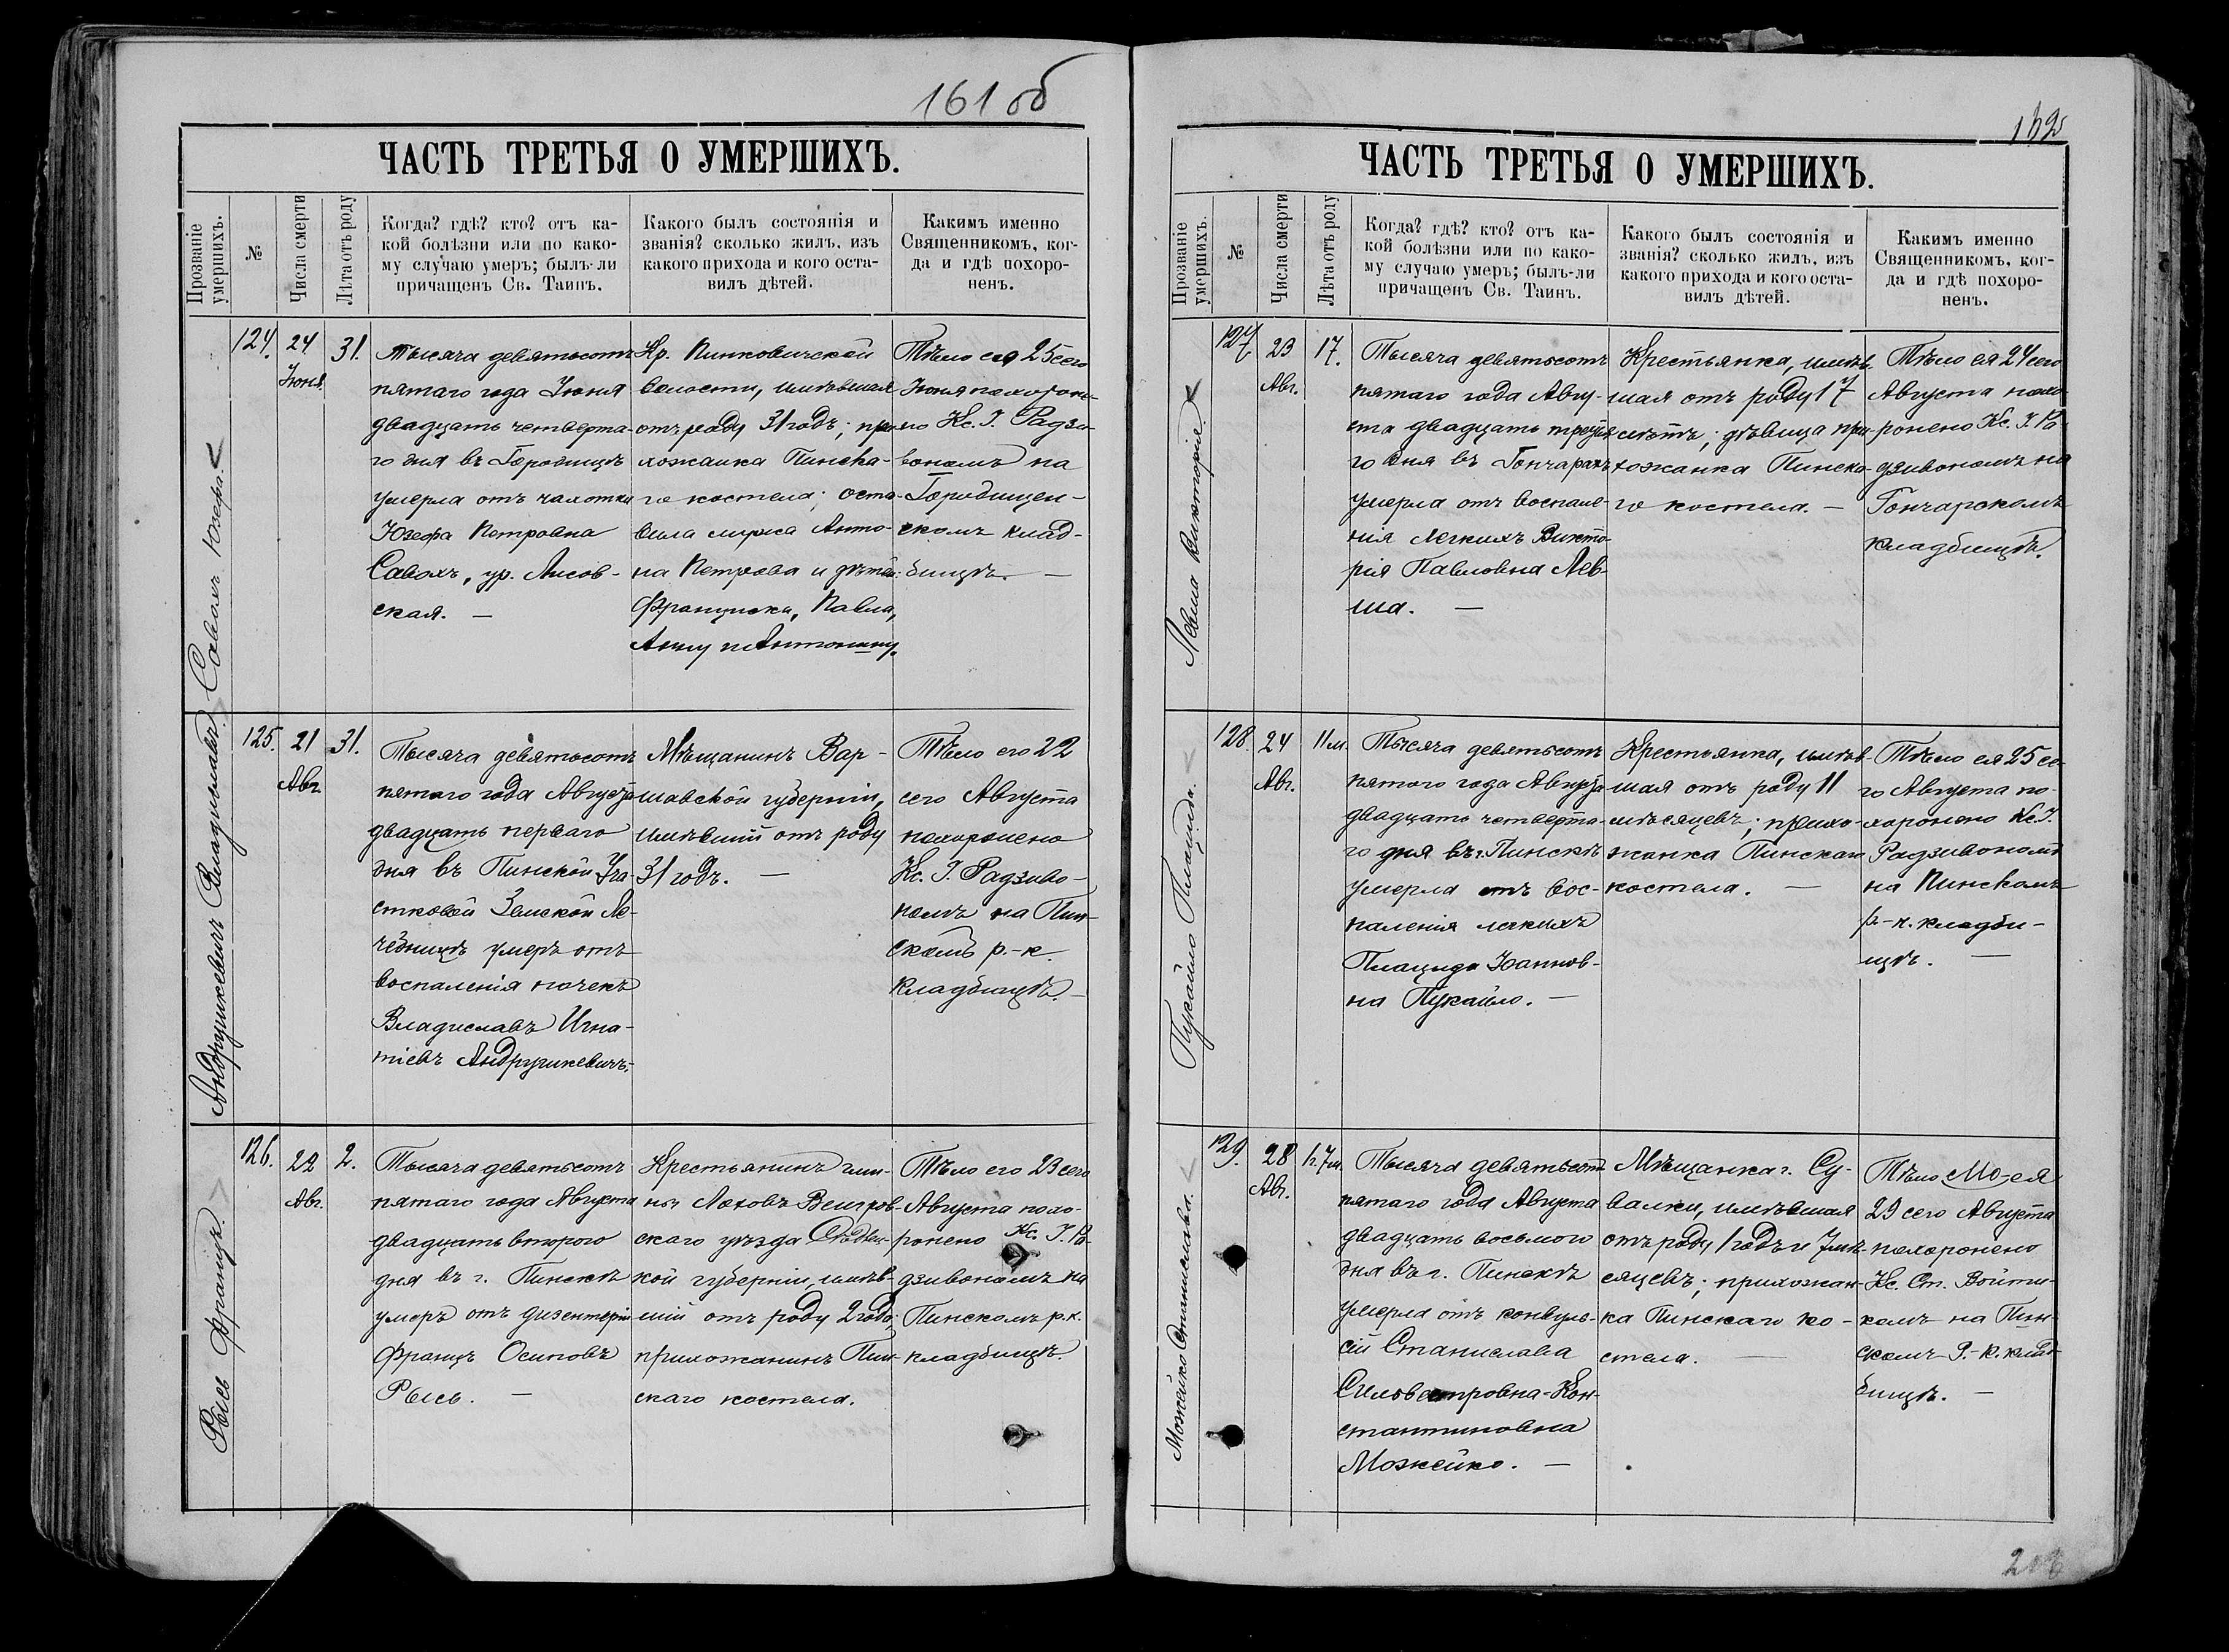 161 об
ЧАСТЬ ТРЕТЬЯ О УМЕРШИХЪ.
Прозваніе умершихъ.
№
Числа смерти
Лѣта отъ роду
Когда? гдѣ? кто? отъ ка-
кой болѣзни или по како-
му случаю умеръ; былъ-ли
причащенъ Св. Таинъ.
Какого былъ состоянія и
званія? сколько жилъ, изъ
какого прихода и кого оста-
вилъ дѣтей.
Какимъ именно
Священникомъ, ког-
да и гдѣ похоро-
ненъ.
Савохъ Юзефа.
124.
24
Іюня
31.
Тысяча девятьсотъ
пятаго года Іюня
двадцать четверта-
го дня въ Городищѣ
умерла отъ чахотки
Юзефа Петровна
Савохъ, ур. Лисов-
ская. —
Кр. Пинковичской
волости, имѣвшая
отъ роду 31 годъ; при-
хожанка Пинска-
го костела; оста-
вила мужа Анто-
на Петрова и дѣтей:
Франциска, Павла,
Анну и Антонину.
Тѣло ея 25 сего
Іюня похороне-
но Кс. І. Радзи-
вономъ на
Городищен-
скомъ клад-
бищѣ. —
Андрушкевичъ Владиславъ.
125.
21
Авг.
31.
Тысяча девятьсотъ
пятаго года Августа
двадцать перваго
дня въ Пинской Уча-
стковой Земской Ле-
чебницѣ умеръ отъ
воспаленія почекъ
Владиславъ Игна-
тіевъ Андрушкевичъ.
Мѣщанинъ Вар-
шавской губерніи,
имѣвшій отъ роду
31 годъ. —
Тѣло его 22
сего Августа
похоронено
Кс. І. Радзиво-
номъ на Пин-
скомъ р.-к.
кладбищѣ. —
Рысь Францъ.
126.
22
Авг.
2.
Тысяча девятьсотъ
пятаго года Августа
двадцать второго
дня въ г. Пинскѣ
умеръ отъ дизентеріи
Францъ Осиповъ
Рысь. —
Крестьянинъ гми-
ны Лоховъ Венгров-
скаго уѣзда Сѣдлец-
кой губерніи, имѣв-
шій отъ роду 2 года;
прихожанинъ Пин-
скаго костела.
Тѣло его 23 сего
Августа похо-
ронено Кс. І. Ра-
дзивономъ на
Пинскомъ р.к.
кладбищѣ.
162
ЧАСТЬ ТРЕТЬЯ О УМЕРШИХЪ.
Прозваніе умершихъ.
№
Числа смерти
Лѣта отъ роду
Когда? гдѣ? кто? отъ ка-
кой болѣзни или по како-
му случаю умеръ; былъ-ли
причащенъ Св. Таинъ.
Какого былъ состоянія и
званія? сколько жилъ, изъ
какого прихода и кого оста-
вилъ дѣтей.
Какимъ именно
Священникомъ, ког-
да и гдѣ похоро-
ненъ.
Левша Викторія.
127
23
Авг.
17.
Тысяча девятьсотъ
пятаго года Авгу-
ста двадцать третья-
го дня въ Гончарахъ
умерла отъ воспале-
нія легкихъ Викто-
рія Павловна Лев-
ша. —
Крестьянка, имѣв-
шая отъ роду 17
лѣтъ; дѣвица при-
хожанка Пинска-
го костела. —
Тѣло ея 24 сего
Августа похо-
ронено Кс. І. Ра-
дзивономъ на
Гончарскомъ
кладбищѣ.
Пукайло Плацида.
128.
24
Авг.
11 м.
Тысяча девятьсотъ
пятого года Августа
двадцать четверта-
го дня въ г. Пинскѣ
умерла отъ вос-
паленія легкихъ
Плацида Іоаннов-
на Пукайло. —
Крестьянка, имѣв-
шая отъ роду 11
мѣсяцевъ; прихо-
жанка Пинскаго
костела. —
Тѣло ея 25 се-
го Августа по-
хоронено Кс. І.
Радзивономъ
на Пинскомъ
р.-к. кладби-
щѣ. —
Можейко Станислава.
129.
28
Авг.
1 г. 7 м.
Тысяча девятьсотъ
пятаго года Августа
двадцать восьмого
дня въ г. Пинскѣ
умерла отъ конвуль-
сій Станислава
Сильвестровна-Кон-
стантиновна
Можейко. —
Мѣщанка г. Су-
валки, имѣвшая
отъ роду 1 годъ и 7 мѣ-
сяцевъ; прихожан-
ка Пинскаго ко-
стела. —
Тѣло ея
29 сего Августа
похоронено
Кс. Ст. Войти-
комъ на Пин-
скомъ Р.-к. клад-
бищѣ. —